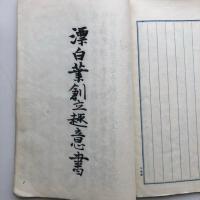 漂白業創立趣意書